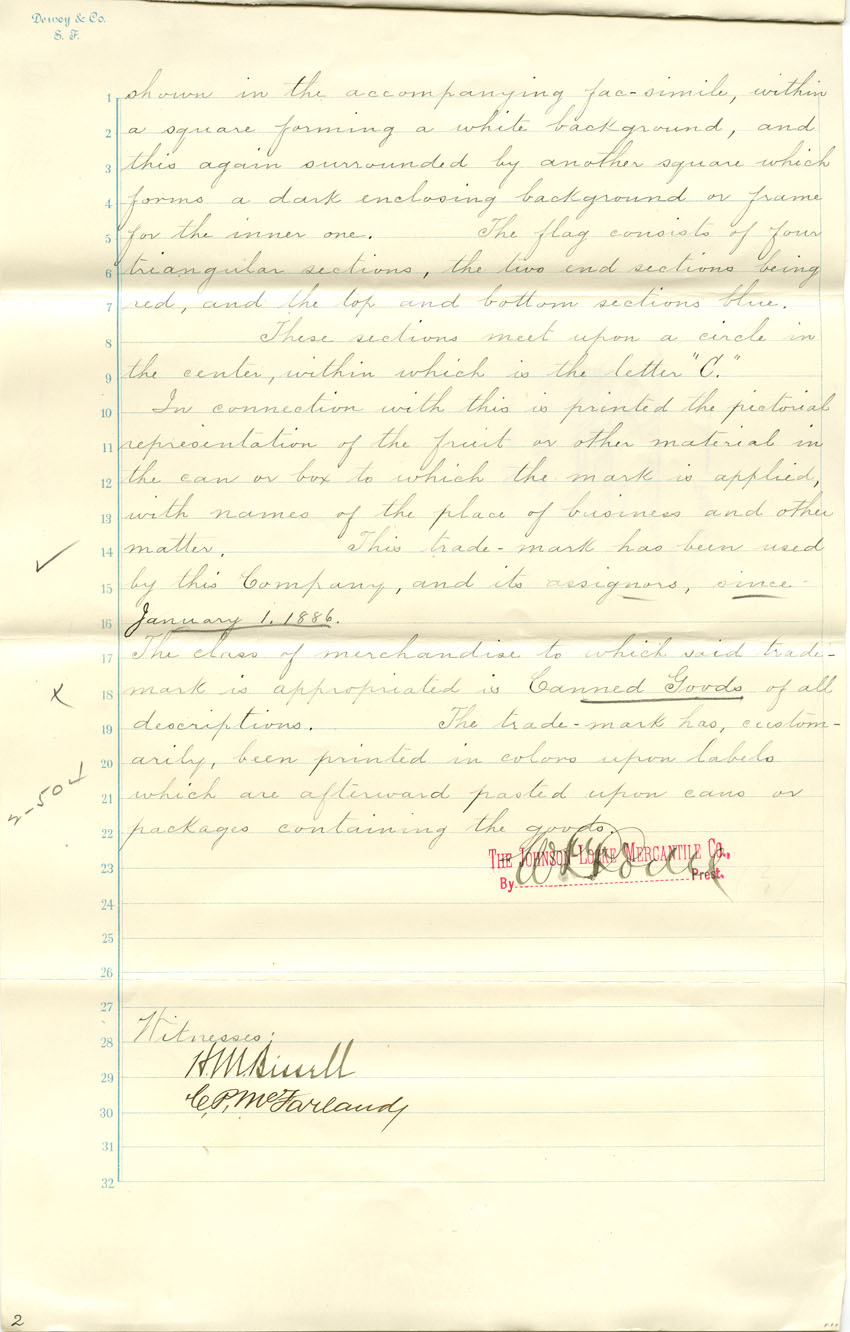 Dewey & Co.
S. F.
1 shown in the accompanying fac-simile, within
2 a square forming a white background, and
3 this again surrounded by another square which
4 forms a dark enclosing background or frame
5 for the inner one. The flag consists of four
6 triangular sections, the two end sections being
7 red, and the top and bottom sections blue.
8 These sections meet upon a circle in
9 the center, within which is the letter "C."
10 In connection with this is printed the pictorial
11 representation of the fruit or other material in
12 the can or box to which the mark is applied,
13 with names of the place of business and other
14 matter. This trade-mark has been used
15 by this Company, and its assignors, since
16 January 1. 1886.
17 The class of merchandise to which said trade-
18 mark is appropriated is Canned Goods of all
19 descriptions. The trade-mark has, custom-
20 arily, been printed in colors upon labels
21 which are afterward pasted upon cans or
22 packages containing the goods.
23 THE JOHNSON-LOCKE MERCANTILE CO.,
By Prest.
24
25
26
27
28 Witnesses:
29 H. M. Bissell
30 C. P. McFarland
31
32
2-50
2